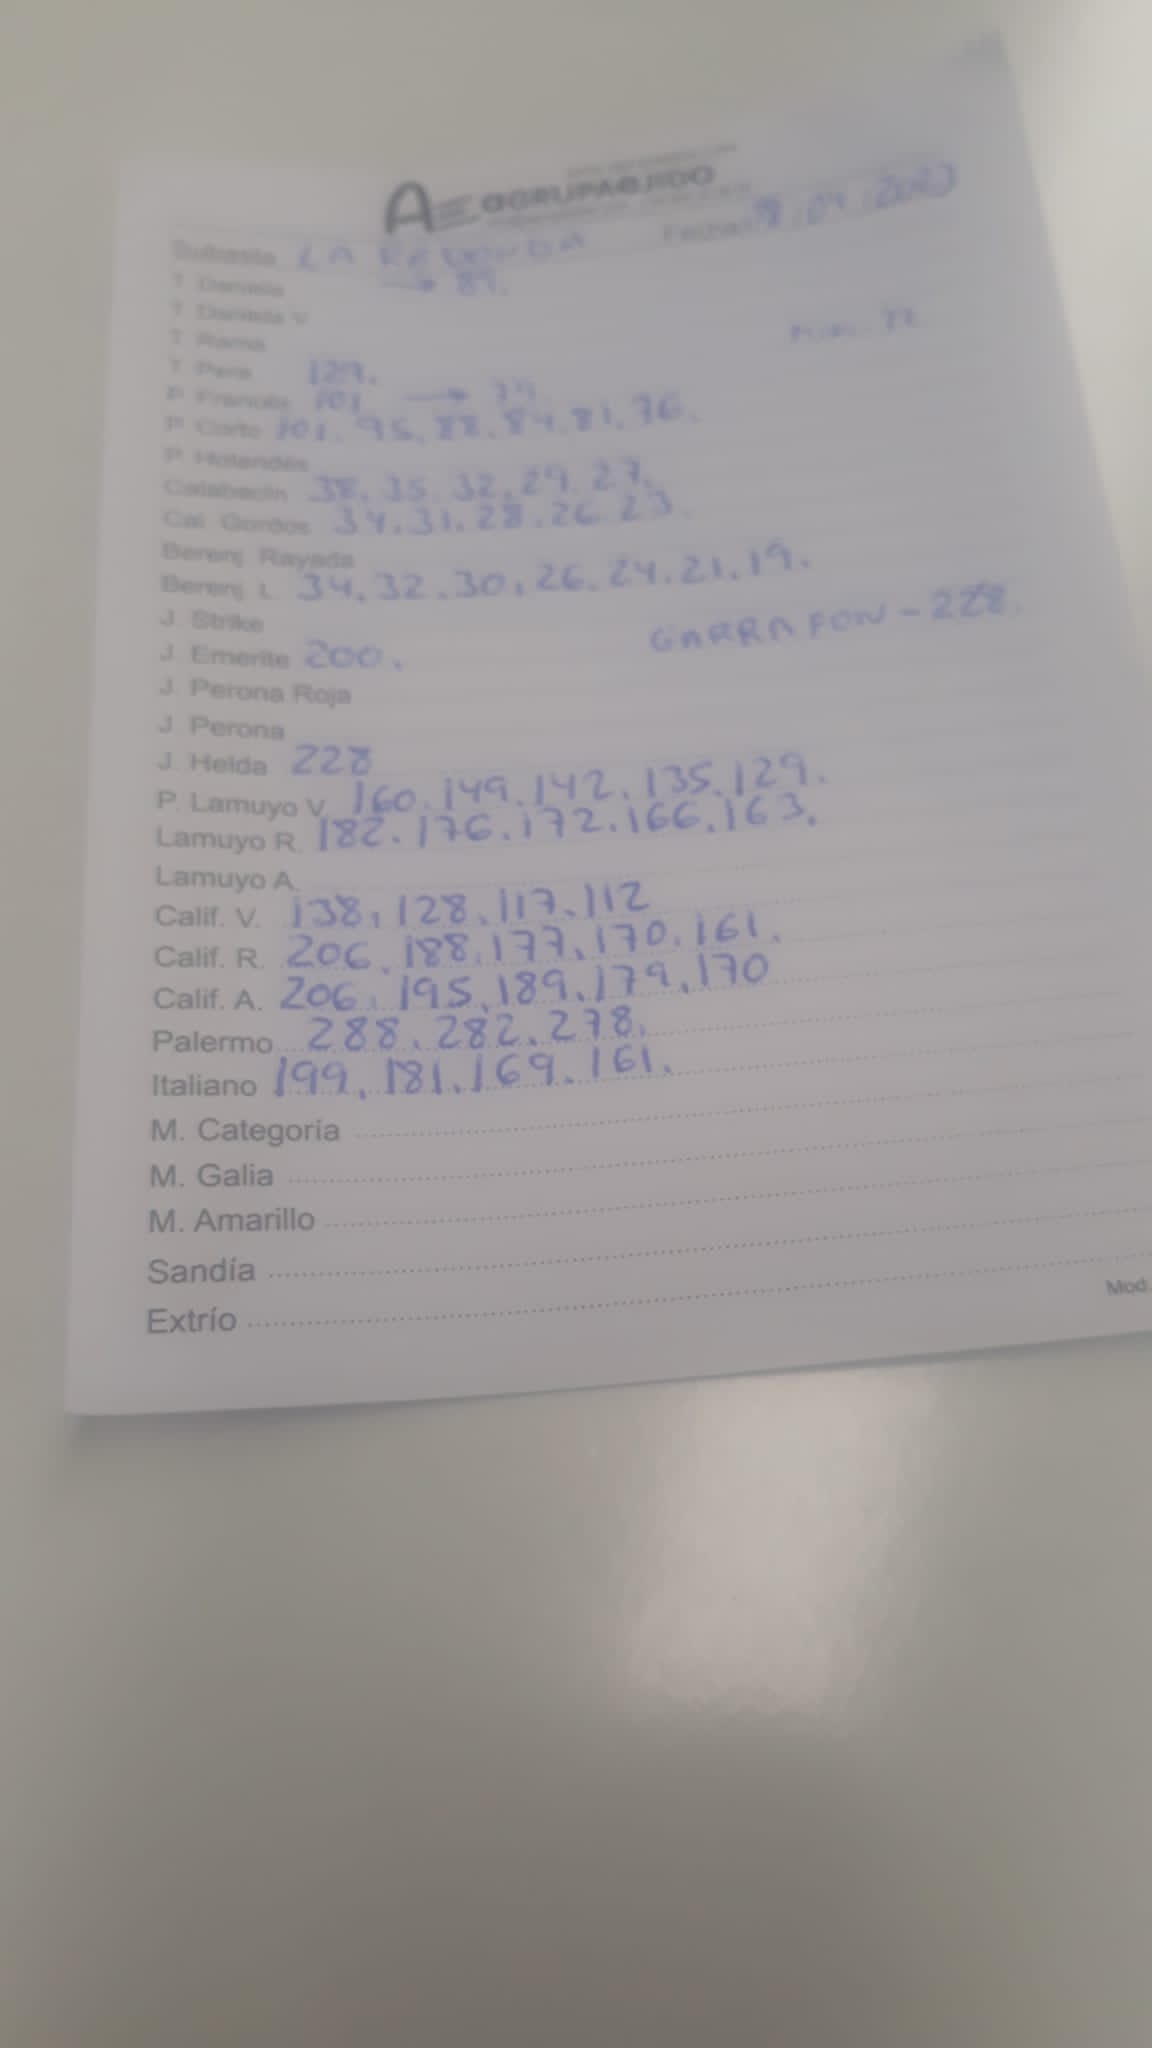 AGRUPAEJIDO
Subasta LA REDONDA Fecha 8.04.2023
T. Daniela → 89.
T. Daniela V
T. Rama
T. Pera 129.
P. Francés 101 → 79
P. Corto 101. 95. 88. 84. 81. 76.
P. Holandés
Calabacín 38. 35. 32. 29. 27.
Cal. Gordos 34. 31. 28. 26. 23.
Berenj. Rayada
Berenj. L. 34. 32. 30. 26. 24. 21. 19.
J. Strike
GARRAFON - 228.
J. Emerite 200.
J. Perona Roja
J. Perona
J. Helda 228
P. Lamuyo V. 160. 149. 142. 135. 129.
Lamuyo R. 182. 176. 172. 166. 163.
Lamuyo A.
Calif. V. 138. 128. 117. 112
Calif. R. 206. 188. 177. 170. 161.
Calif. A. 206. 195. 189. 179. 170
Palermo 288. 282. 278.
Italiano 199. 181. 169. 161.
M. Categoría
M. Galia
M. Amarillo
Sandía
Extrío
Mod.